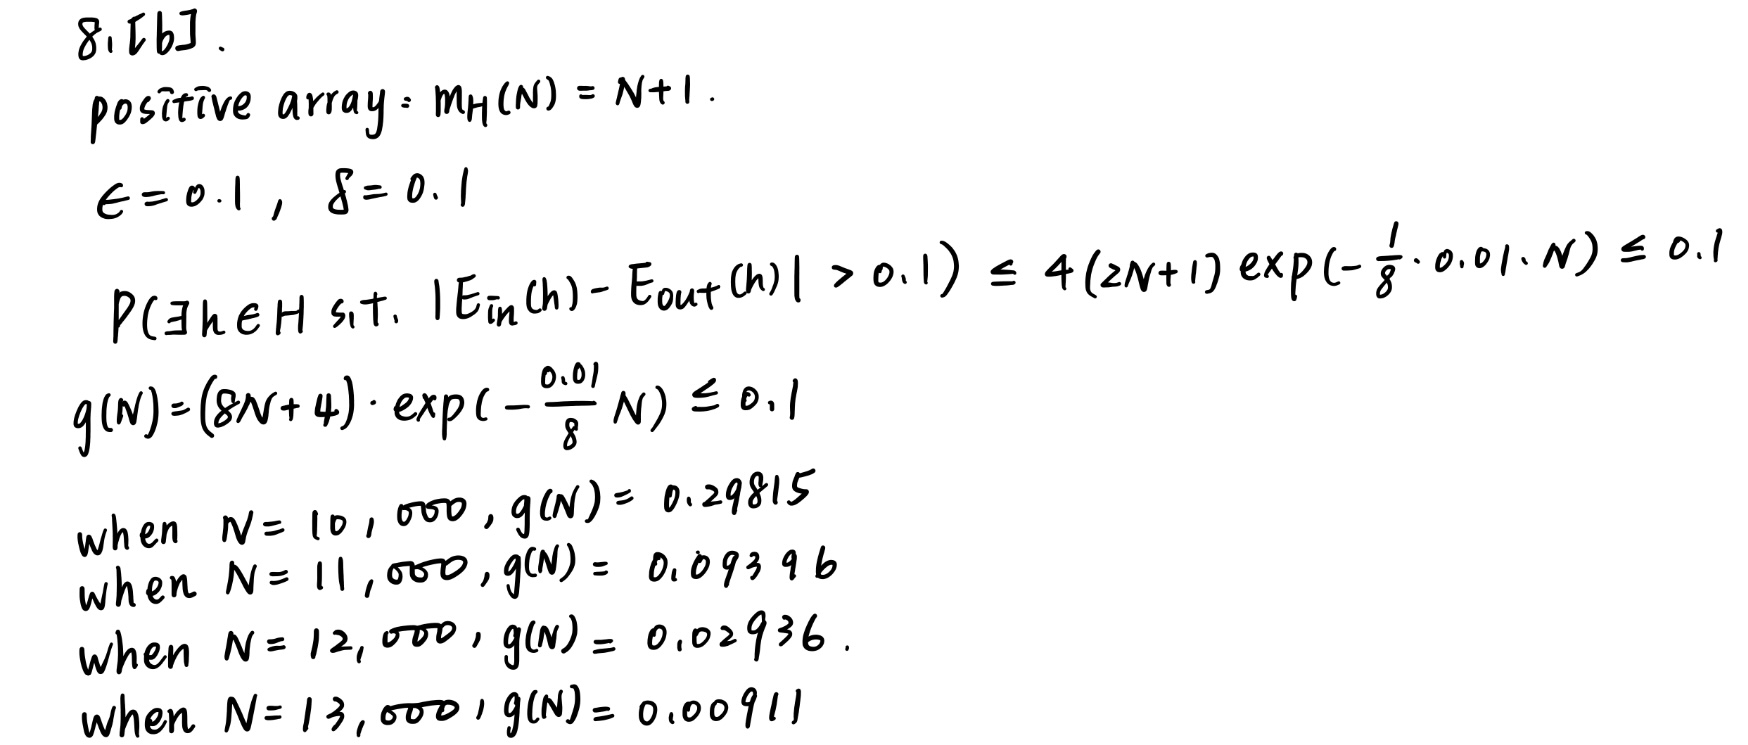 8.[b].
positive array: m_H(N) = N+1.
ϵ = 0.1, δ = 0.1
P(∃h∈H s.t. |E_in(h) - E_out(h)| > 0.1) ≤ 4(2N+1) exp(-1/8 · 0.01 · N) ≤ 0.1
g(N) = (8N+4) · exp(-0.01/8 N) ≤ 0.1
when N = 10,000, g(N) = 0.29815
when N = 11,000, g(N) = 0.09396
when N = 12,000, g(N) = 0.02936.
when N = 13,000, g(N) = 0.00911